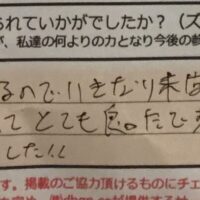 られていかがでしたか？（ズ
が、私達の何よりの力となり今後の参
るので、いきなり来院
て とても良ったです
した!!
す。掲載のご協力頂けるものにチェ